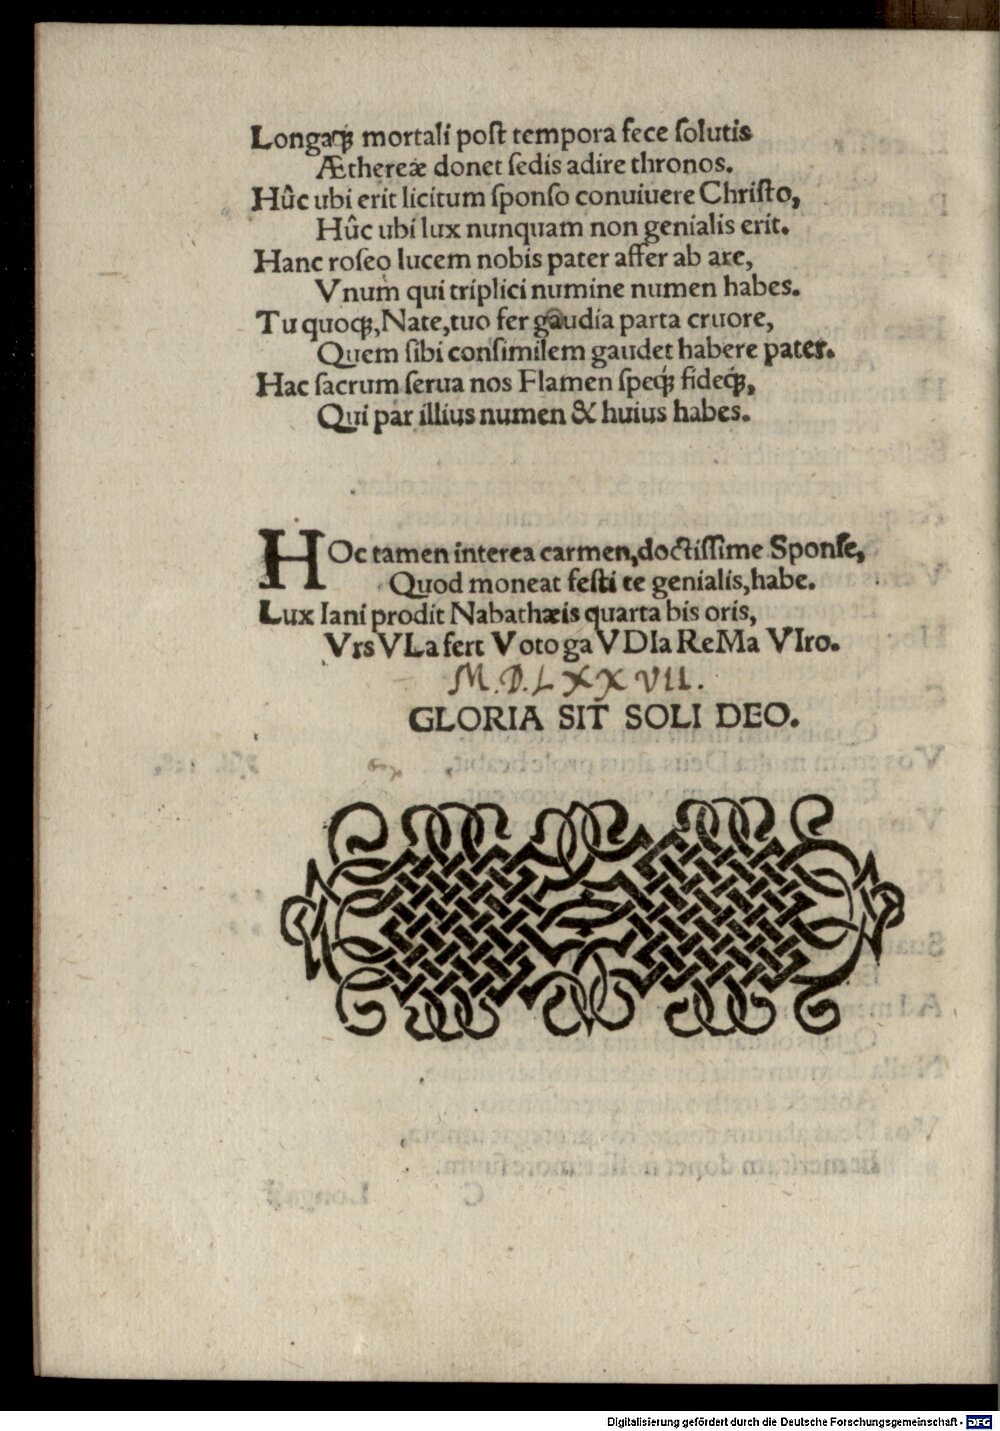 Longaq́ꝫ mortali poſt tempora fece ſolutis
Æthereæ donet ſedis adire thronos.
Hûc ubi erit licitum ſponſo conuiuere Chriſto,
Hûc ubi lux nunquam non genialis erit.
Hanc roſeo lucem nobis pater affer ab axe,
Vnum qui triplici numine numen habes.
Tu quoqꝫ, Nate, tuo fer gaudia parta cruore,
Quem ſibi conſimilem gaudet habere pater.
Hac ſacrum ſerua nos Flamen ſpeq́ꝫ fideq́ꝫ,
Qui par illius numen & huius habes.
HOc tamen interea carmen, doctiſſime Sponſe,
Quod moneat feſti te genialis, habe.
Lux Iani prodit Nabathæis quarta bis oris,
VrsVLa fert Voto gaVDIa ReMa VIro.
M.D.LXXVII.
GLORIA SIT SOLI DEO.
Digitalisierung gefördert durch die Deutsche Forschungsgemeinschaft - DFG